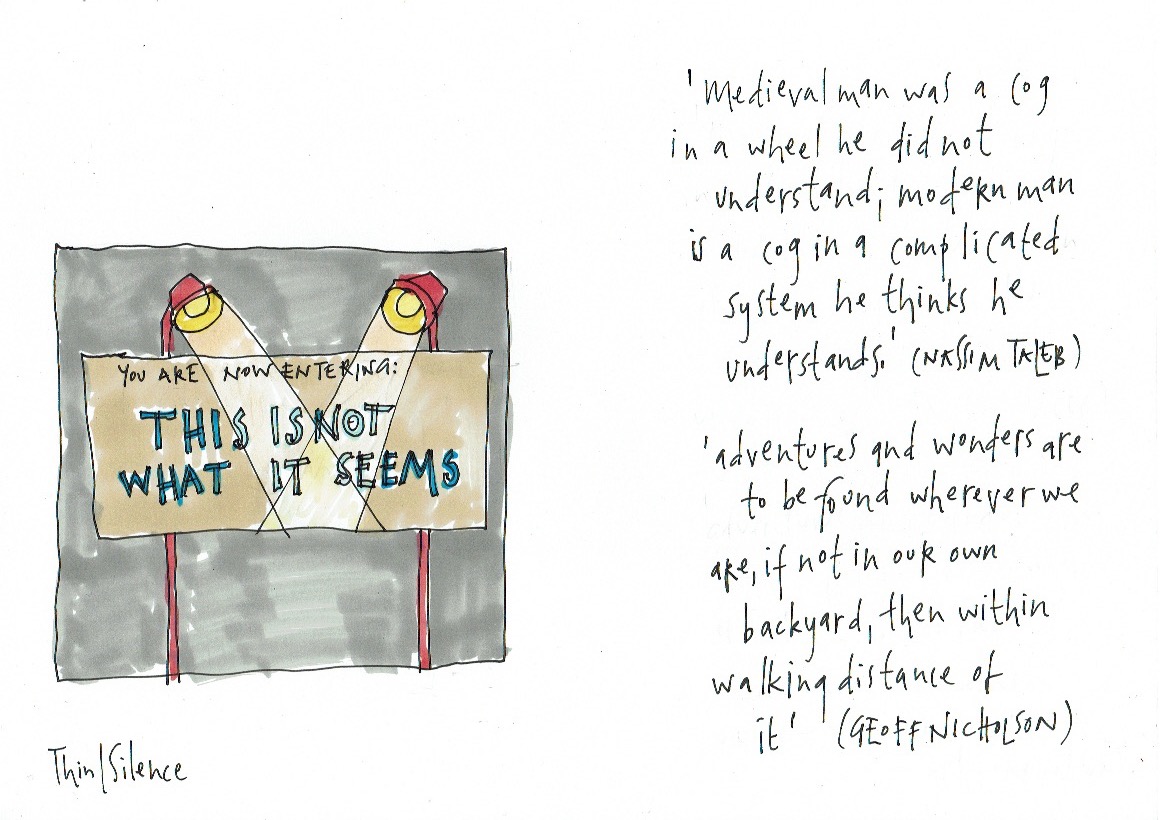 YOU ARE NOW ENTERING:
THIS IS NOT
WHAT IT SEEMS
Thin/Silence
'Medieval man was a cog
in a wheel he did not
understand; modern man
is a cog in a complicated
system he thinks he
understands.' (NASSIM TALEB)
'adventures and wonders are
to be found wherever we
are, if not in our own
backyard, then within
walking distance of
it' (GEOFF NICHOLSON)